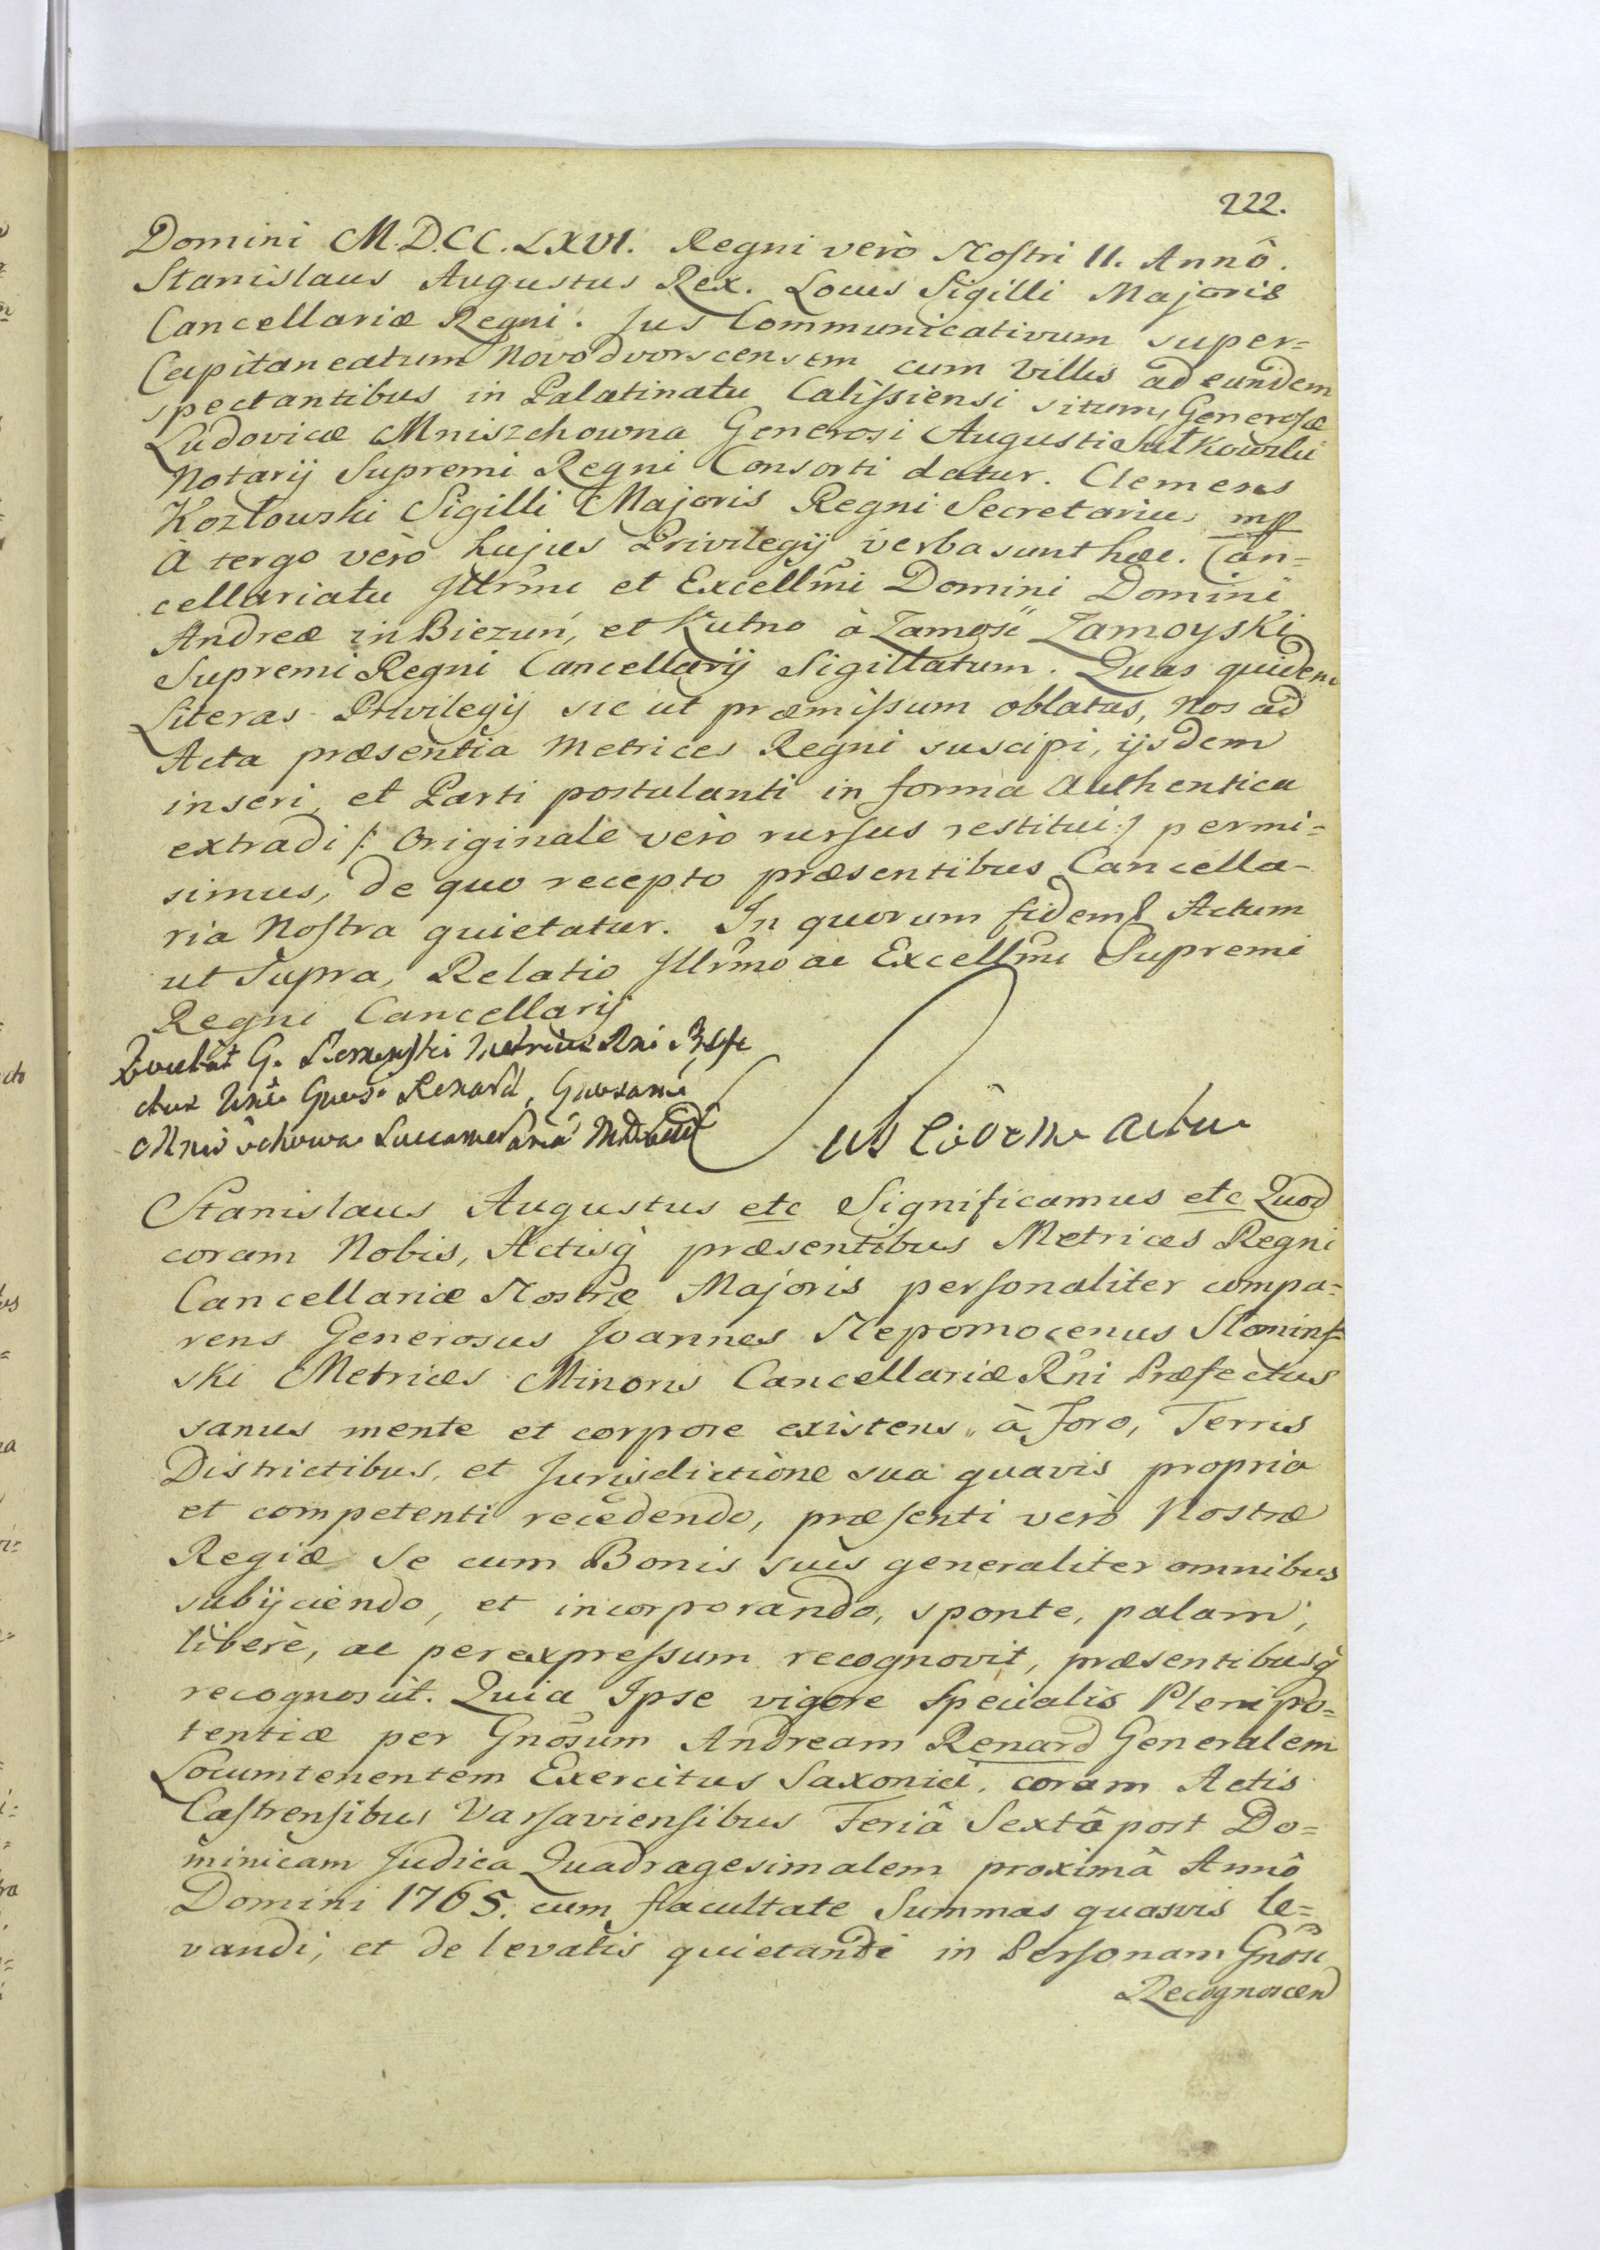 222.
Domini M.D.CC.LXVI. Regni verò Nostri II. Annô.
Stanislaus Augustus Rex. Locus Sigilli Majoris
Cancellariæ Regni. Jus Communicativum super=
Capitaneatum Novodvorscensem cum Villis ad eundem
spectantibus in Palatinatu Calissiensi situm, Generosæ
Ludovicæ Mniszchowna Generosi Augusti Sułkowski
Notarij Supremi Regni Consorti datur. Clemens
Kozłowski Sigilli Majoris Regni Secretarius mp
À tergo verò hujus Privilegij verba sunt hæc. Can=
cellariatu Jllrmi et Excellmi Domini Domini
Andreæ in Biezuń, et Kutno à Zamość Zamoyski
Supremi Regni Cancellarij Sigillatum. Quas quidem
Literas Privilegij sic ut præmissum oblatas, Nos ad
Acta præsentia Metrices Regni suscipi, ijsdem
inseri, et Parti postulanti in forma Authentica
extradi /: Originale verò rursus restitui :/ permi=
simus, de quo recepto præsentibus Cancella-
ria Nostra quietatur. In quorum fidem Actum
ut Supra, Relatio Jllrmo ac Excellmi Supremi
Regni Cancellarij
G. Metrices Rni
Renard,
Sub eodem actu
Stanislaus Augustus etc Significamus etc Quod
coram Nobis, Actisq præsentibus Metrices Regni
Cancellariæ Nostræ Majoris personaliter compa=
rens Generosus Joannes Nepomocenus Słomins=
ski Metrices Minoris Cancellariæ Rni Præfectus
sanus mente et corpore existens, à foro, Terris
Districtibus, et Jurisdictione sua quavis propria
et competenti recedendo, præsenti verò Nostræ
Regiæ Se cum Bonis suis generaliter omnibus
subijciendo, et incorporando, sponte, palam,
liberè, ac per expressum recognovit, præsentibusq
recognoscit. Quia Ipse vigore specialis Plenipo=
tentiæ per Gnosum Andream Renard Generalem
Locumtenentem Exercitus Saxonici, coram Actis
Castrensibus Varsaviensibus Feriâ Sextâ post Do=
minicam Judica Quadragesimalem proximâ Annô
Domini 1765. cum facultate Summas quasvis le=
vandi, et de levatis quietandi in Personam Gnosi
Recognoscen